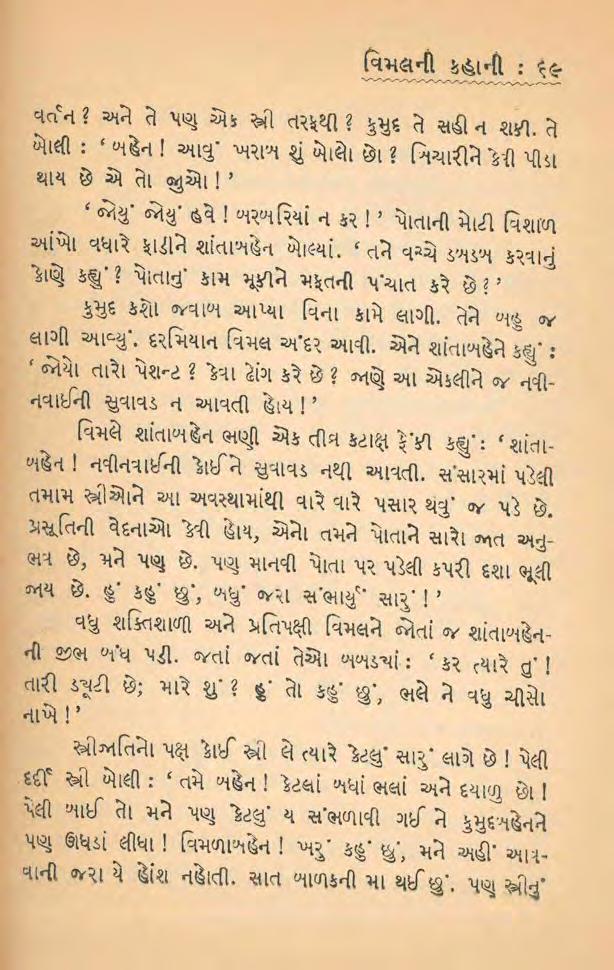 વિમલની કહાની : ૬૯
વર્તન? અને તે પણ એક સ્ત્રી તરફથી? કુમુદ તે સહી ન શકી. તે
બોલી : ‘બહેન! આવું ખરાબ શું બોલો છો? બિચારીને કેવી પીડા
થાય છે એ તો જુઓ!’
‘જોયું જોયું હવે! બરબરિયાં ન કર!’ પોતાની મોટી વિશાળ
આંખો વધારે ફાડીને શાંતાબહેન બોલ્યાં. ‘તને વચ્ચે ડબડબ કરવાનું
કોણે કહ્યું? પોતાનું કામ મૂકીને મફતની પંચાત કરે છે?’
કુમુદ કશો જવાબ આપ્યા વિના કામે લાગી. તેને બહુ જ
લાગી આવ્યું. દરમિયાન વિમલ અંદર આવી. એને શાંતાબહેને કહ્યું :
‘જોયો તારો પેશન્ટ? કેવા ઢોંગ કરે છે? જાણે આ એકલીને જ નવી-
નવાઈની સુવાવડ ન આવતી હોય!’
વિમલે શાંતાબહેન ભણી એક તીવ્ર કટાક્ષ ફેંકી કહ્યું : ‘શાંતા-
બહેન! નવીનવાઈની કોઈને સુવાવડ નથી આવતી. સંસારમાં પડેલી
તમામ સ્ત્રીઓને આ અવસ્થામાંથી વારે વારે પસાર થવું જ પડે છે.
પ્રસૂતિની વેદનાઓ કેવી હોય, એનો તમને પોતાને સારો જાત અનુ-
ભવ છે, મને પણ છે. પણ માનવી પોતા પર પડેલી કપરી દશા ભૂલી
જાય છે. હું કહું છું, બધું જરા સંભાર્યું સારું!’
વધુ શક્તિશાળી અને પ્રતિપક્ષી વિમલને જોતાં જ શાંતાબહેન-
ની જીભ બંધ પડી. જતાં જતાં તેઓ બબડ્યાં : ‘કર ત્યારે તું!
તારી ડ્યૂટી છે; મારે શું? હું તો કહું છું, ભલે ને વધુ ચીસો
નાખે!’
સ્ત્રીજાતિનો પક્ષ કોઈ સ્ત્રી લે ત્યારે કેટલું સારું લાગે છે! પેલી
દર્દી સ્ત્રી બોલી : ‘તમે બહેન! કેટલાં બધાં ભલાં અને દયાળુ છો!
પેલી બાઈ તો મને પણ કેટલું ય સંભળાવી ગઈ ને કુમુદબહેનને
પણ ઊધડાં લીધા! વિમળાબહેન! ખરું કહું છું, મને અહીં આવ-
વાની જરા યે હોંશ નહોતી. સાત બાળકની મા થઈ છું. પણ સ્ત્રીનું